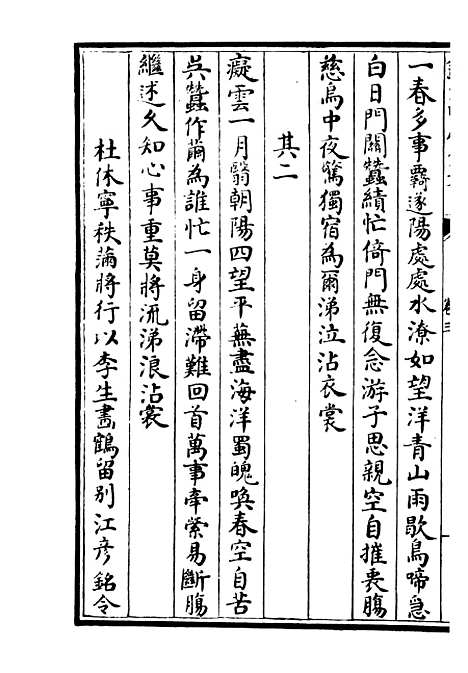 一春多事霸遂陽處處水潦如望洋青山雨歇鳥啼急
白日門關蠶績忙倚門無復念游子思親空自摧衷腸
慈烏中夜驚獨宿為爾涕泣沾衣裳
其二
癡雲一月翳朝陽四望平蕪盡海洋蜀魄喚春空自苦
吳蠶作繭為誰忙一身留滯難回首萬事牽縈易斷腸
繼述久知心事重莫將流涕浪沾裳
杜休寧秩滿將行以李生畫鶴留別江彥銘令